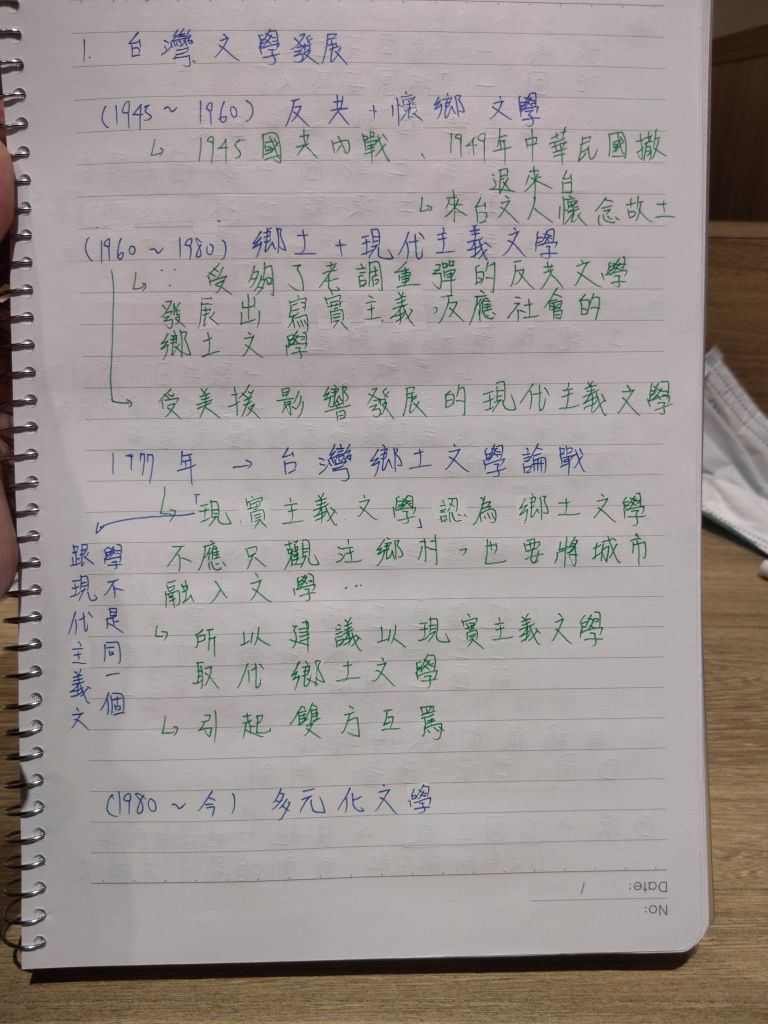 1. 台灣文學發展
(1945~1960) 反共+懷鄉文學
↳ 1945國共內戰、1949年中華民國撤
退來台
↳來台文人懷念故土
(1960~1980) 鄉土+現代主義文學
↳ ∵ 受夠了老調重彈的反共文學
發展出寫實主義,反應社會的
鄉土文學
↳ 受美援影響發展的現代主義文學
1977年 → 台灣鄉土文學論戰
↳「現實主義文學」認為鄉土文學
不應只觀注鄉村,也要將城市
融入文學…
跟現代主義文
學不是同一個
↳ 所以建議以現實主義文學
取代鄉土文學
↳ 引起雙方互罵
(1980~今) 多元化文學
Date: /
No: